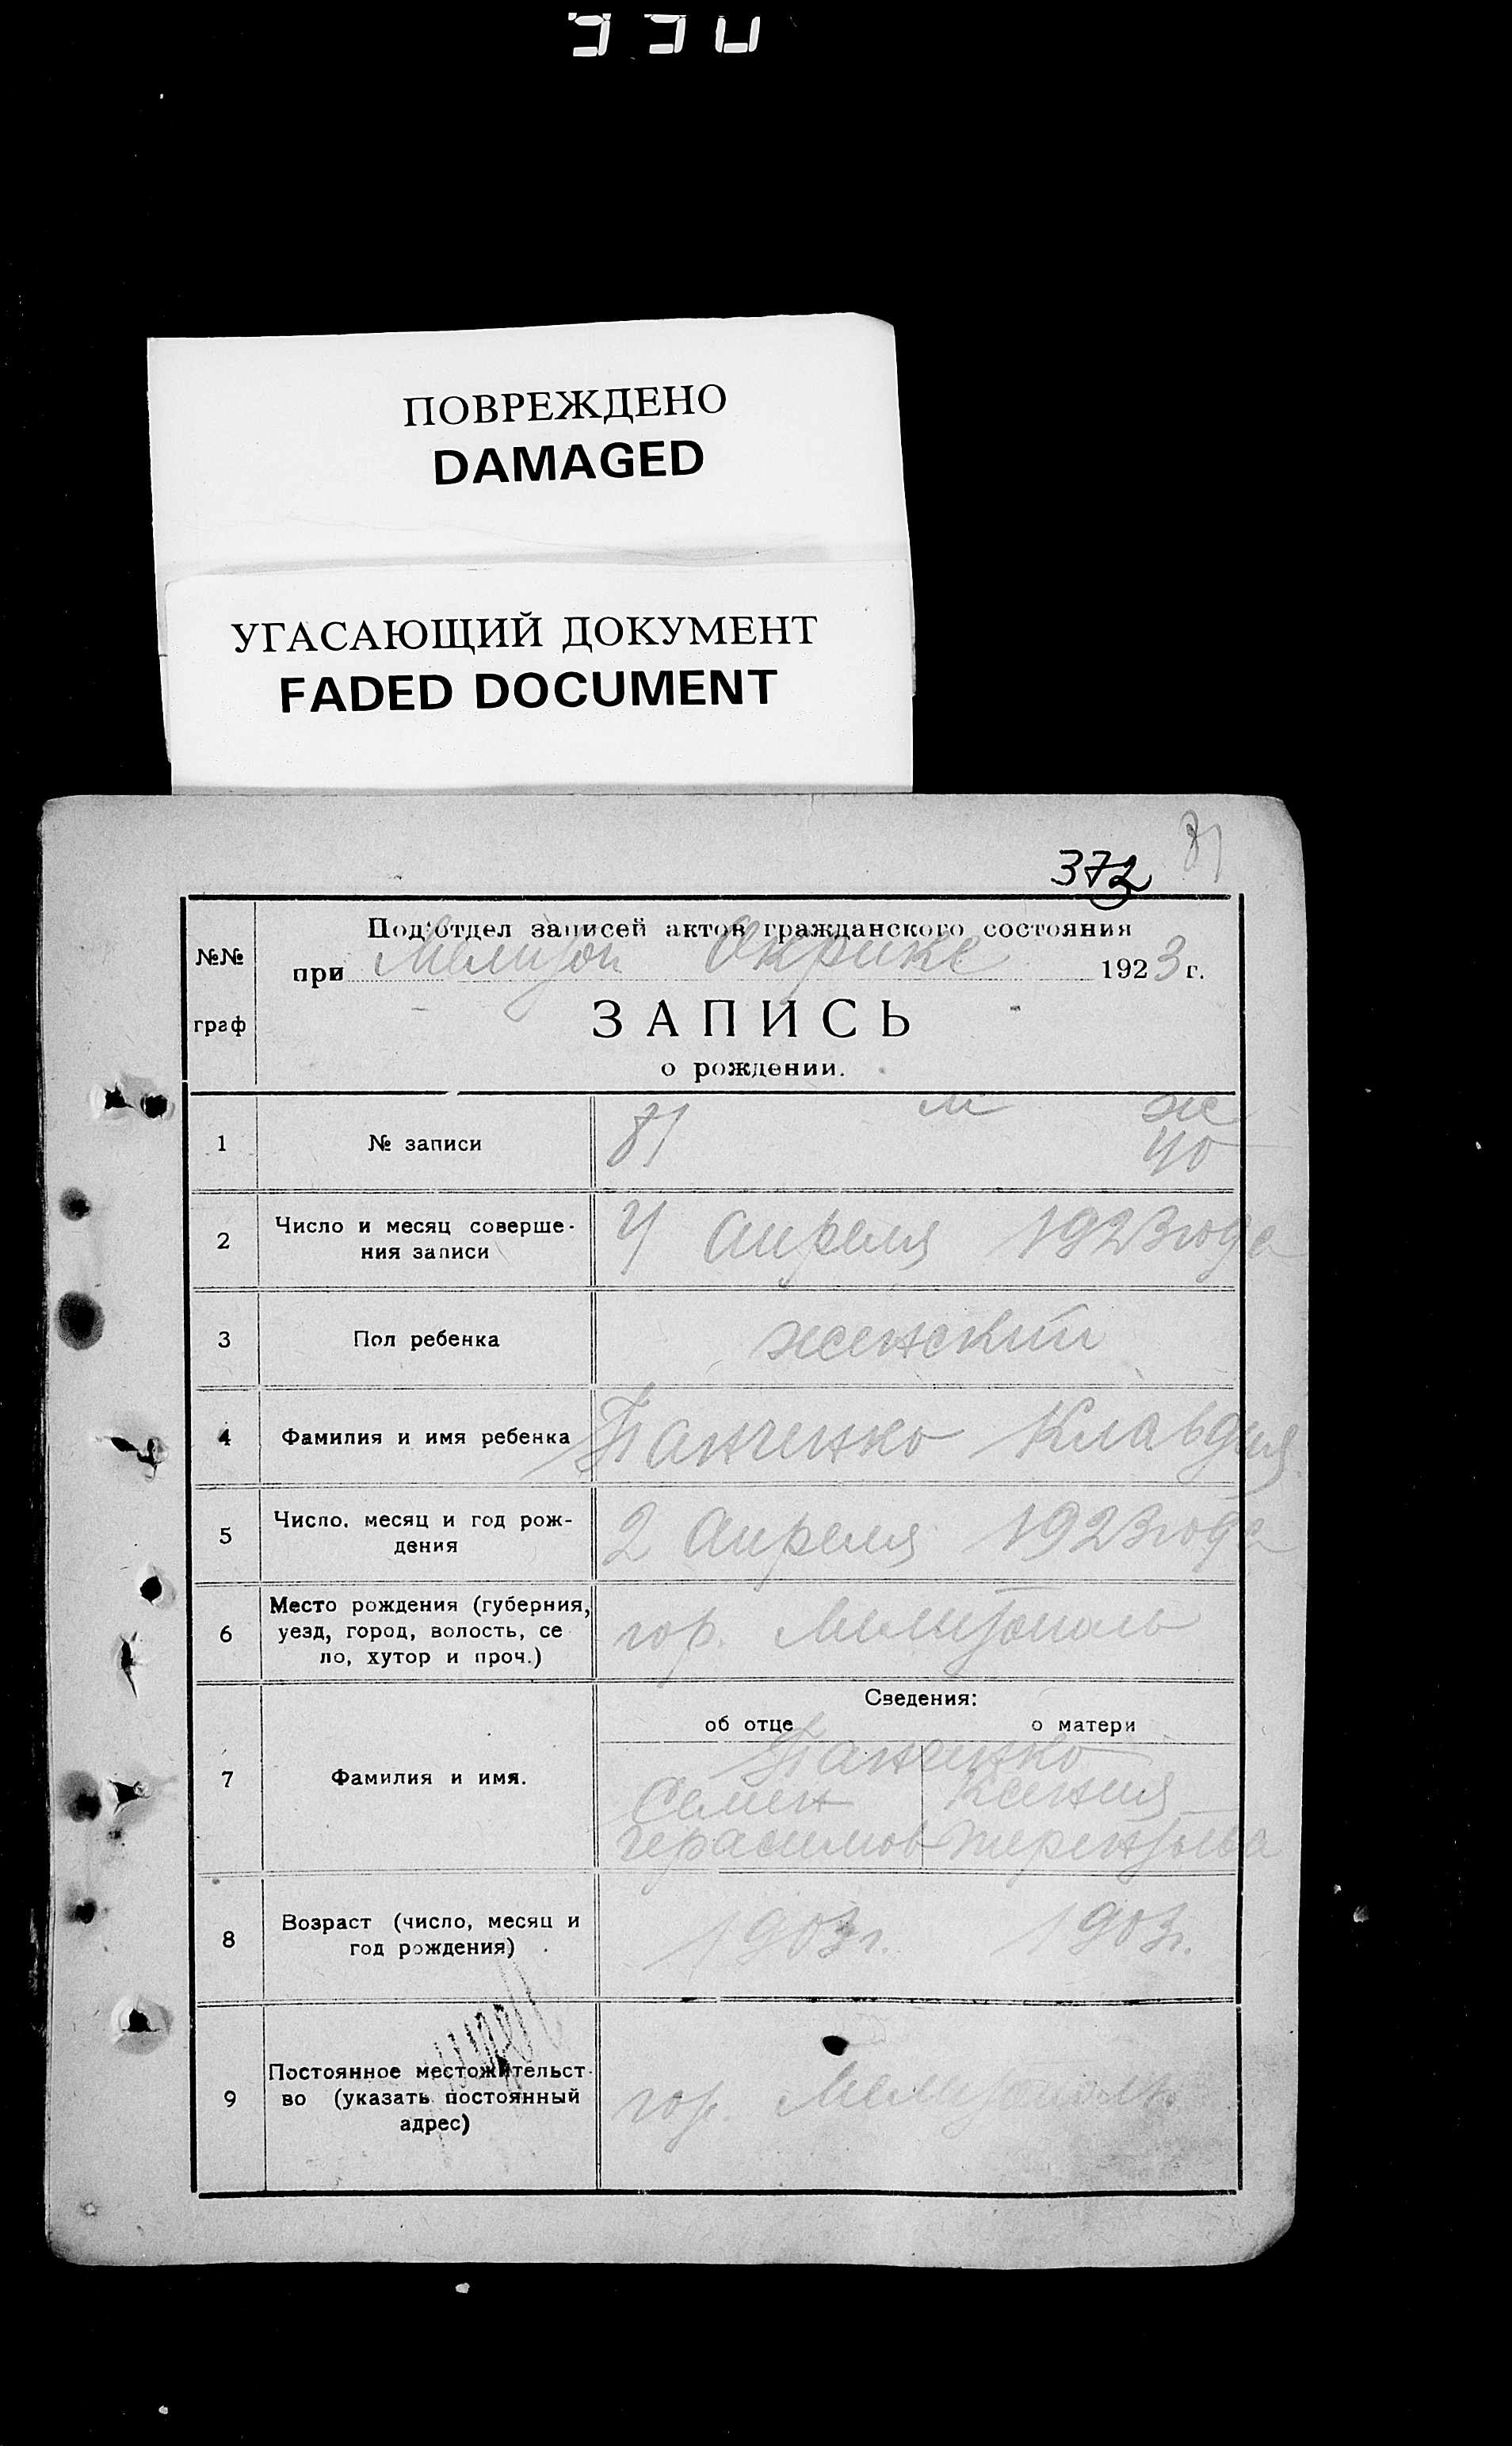 ПОВРЕЖДЕНО
DAMAGED
УГАСАЮЩИЙ ДОКУМЕНТ
FADED DOCUMENT
81
372
№№
граф
Под'отдел записей актов гражданского состояния
при Мелитоп Окрике 1923 г.
ЗАПИСЬ
о рождении.
1
№ записи
81 м ж
40
2
Число и месяц соверше-
ния записи
4 Апреля 1923 года
3
Пол ребенка
женский
4
Фамилия и имя ребенка
Панченко Клавдия
5
Число, месяц и год рож-
дения
2 Апреля 1923 года
6
Место рождения (губерния,
уезд, город, волость, се
ло, хутор и проч.)
гор. Мелитополь
Сведения:
об отце
о матери
7
Фамилия и имя.
Панченко
Семен Ксения
Герасимов Терентьева
8
Возраст (число, месяц и
год рождения)
1903г. 1903г.
9
Постоянное местожительст-
во (указать постоянный
адрес)
гор. Мелитополь